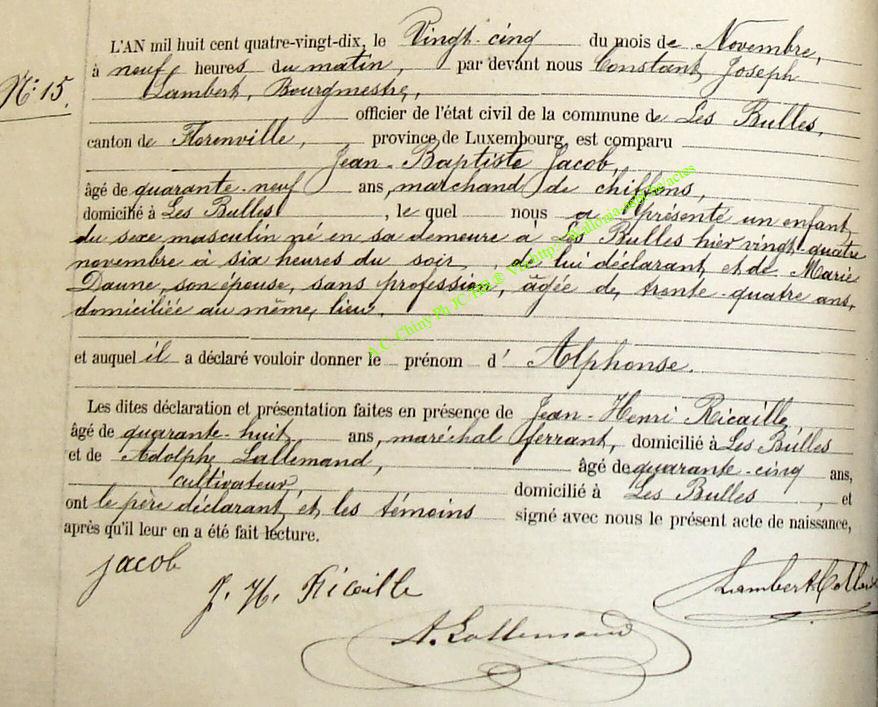 L'AN mil huit cent quatre-vingt-dix, le Vingt-cinq du mois de Novembre,
à neuf heures du matin, par devant nous Constant, Joseph
N.° 15.
Lambert, Bourgmestre,
officier de l'état civil de la commune de Les Bulles,
canton de Florenville, province de Luxembourg, est comparu
Jean-Baptiste Jacob,
âgé de quarante-neuf ans, marchand de chiffons,
domicilié à Les Bulles, le quel nous a présenté un enfant
du sexe masculin né en sa demeure à Les Bulles hier vingt-quatre
novembre à six heures du soir, de lui déclarant et de Marie
Daune, son épouse, sans profession, âgée de trente-quatre ans,
domiciliée au même lieu.
et auquel il a déclaré vouloir donner le prénom d' Alphonse.
Les dites déclaration et présentation faites en présence de Jean-Henri Ricaille
âgé de quarante-huit ans, maréchal ferrant, domicilié à Les Bulles
et de Adolphe Lallemand, âgé de quarante-cinq ans,
cultivateur, domicilié à Les Bulles, et
ont le père déclarant et les témoins signé avec nous le présent acte de naissance,
après qu'il leur en a été fait lecture.
Jacob
J. H. Ricaille
Lambert
A. Lallemand
A.C. Chiny Ph JC